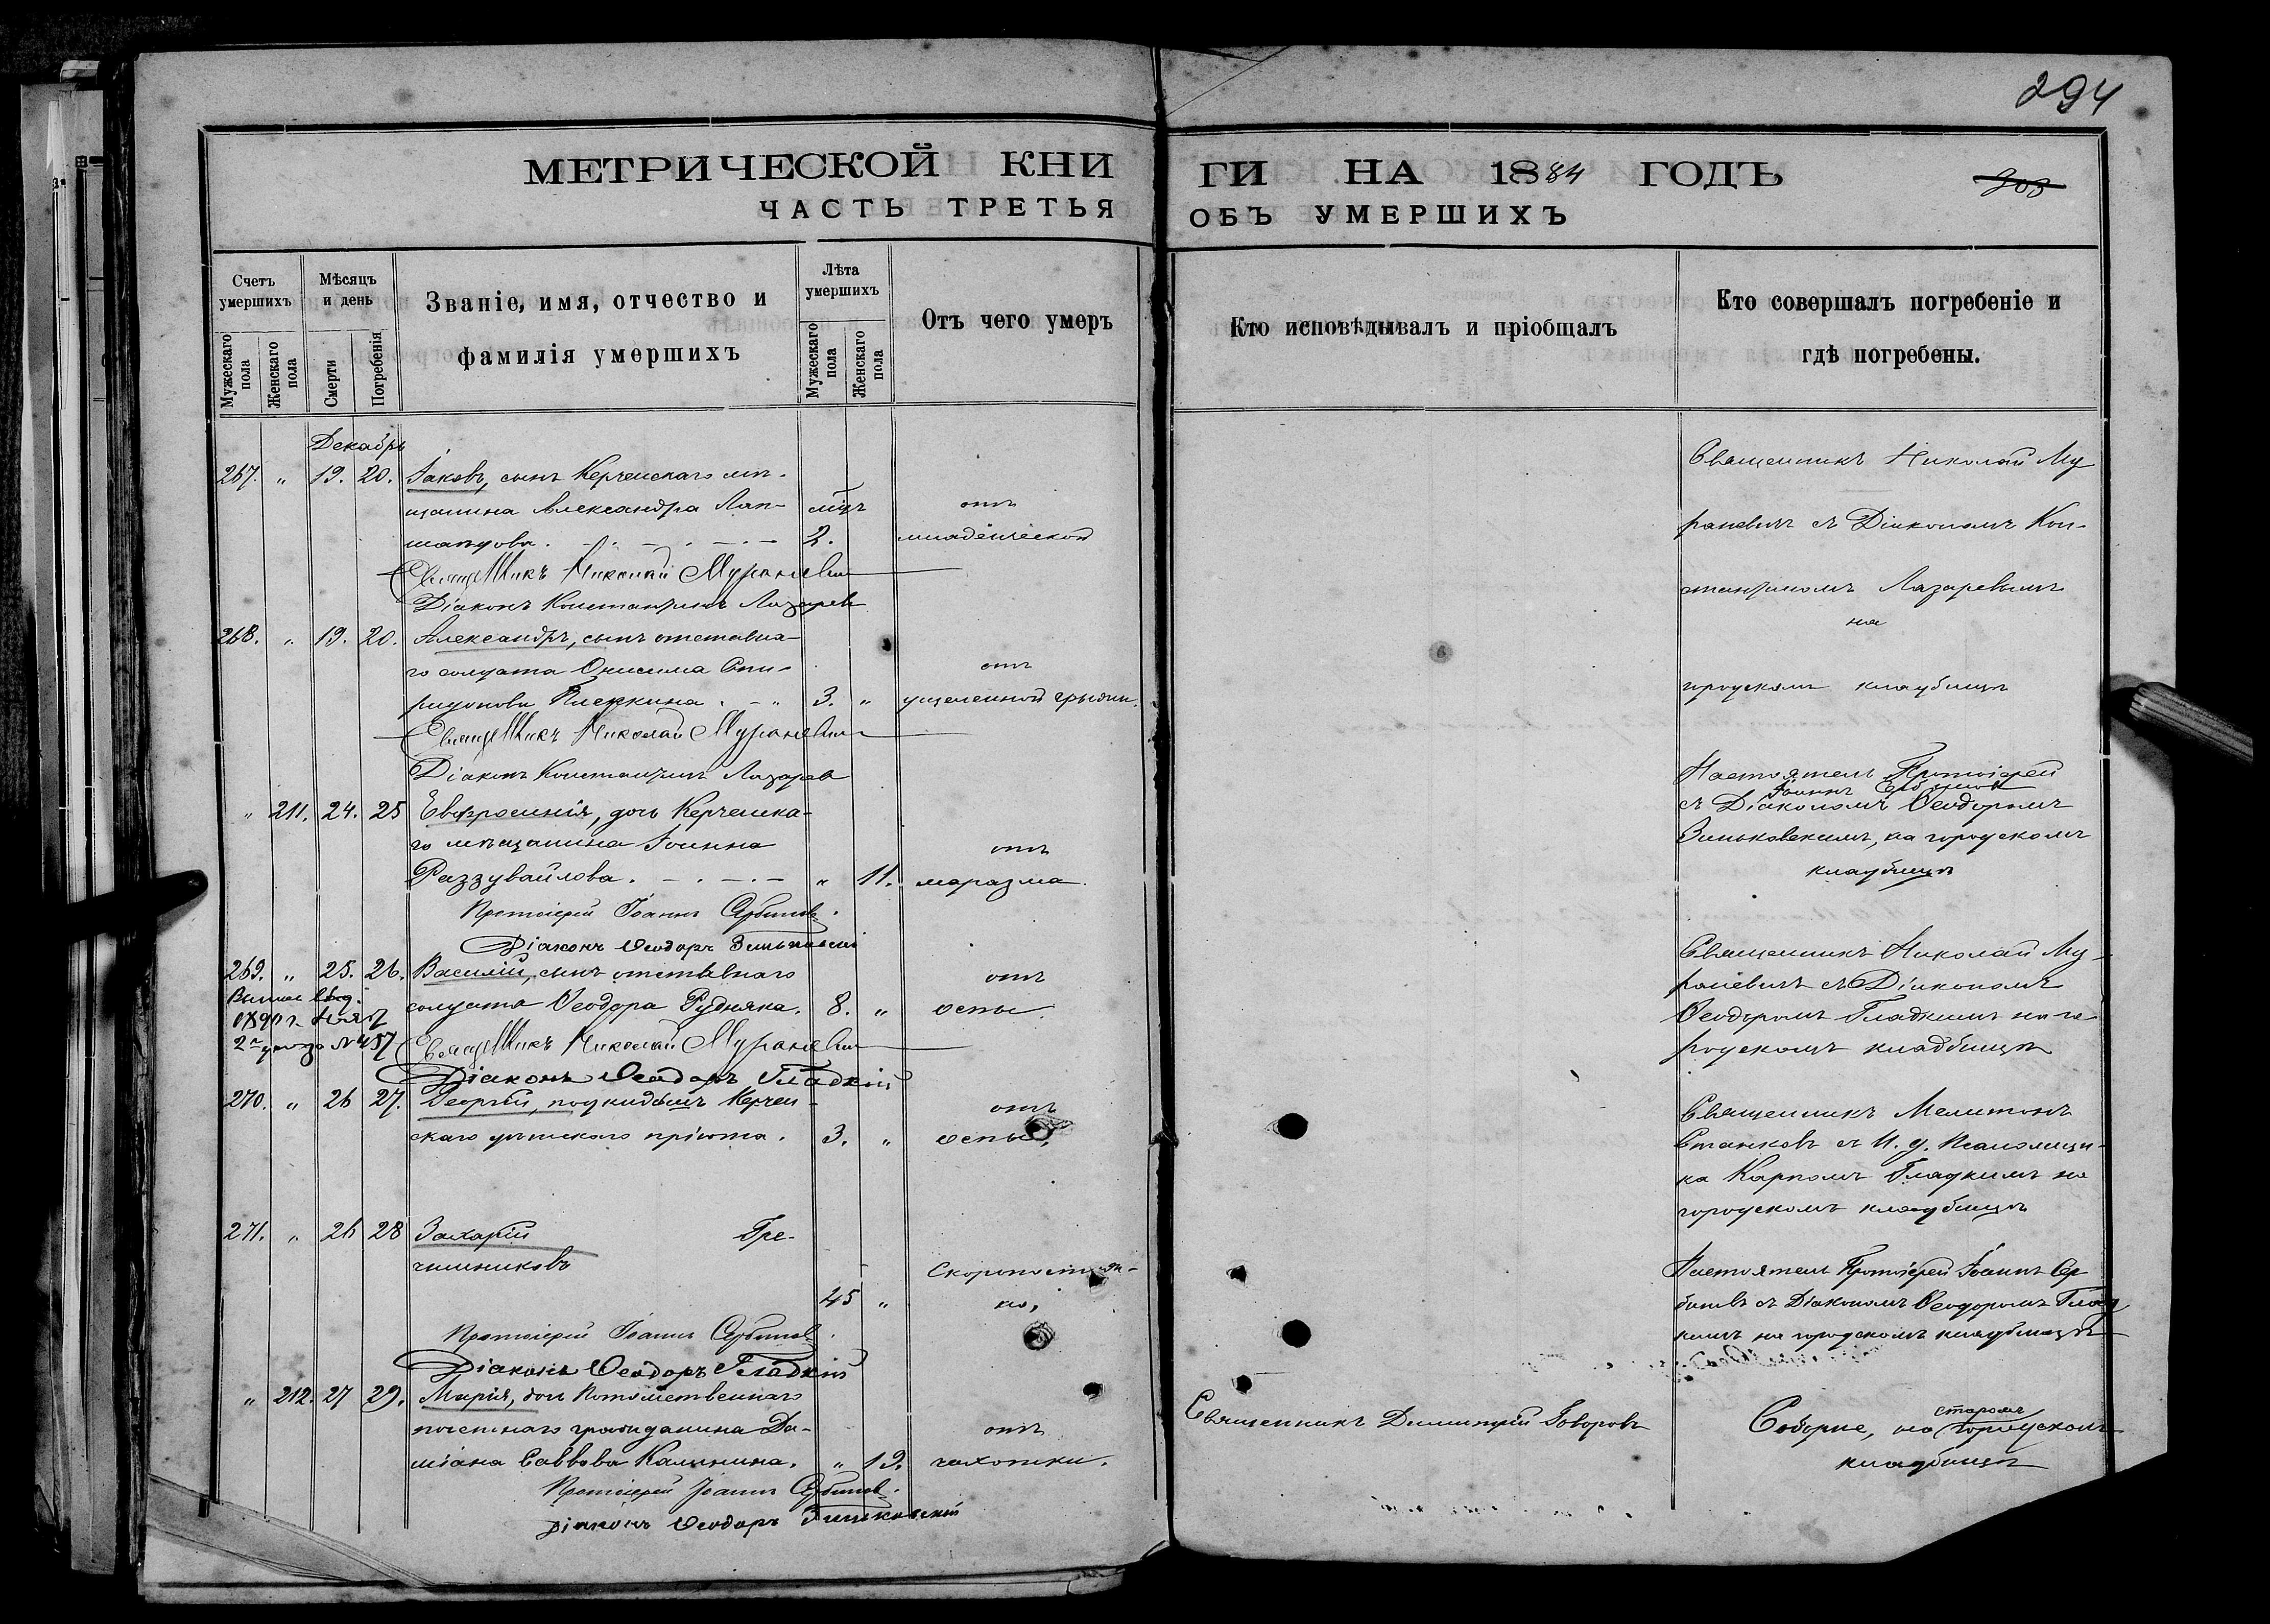 294
МЕТРИЧЕСКОЙ КНИ
ГИ НА 1884 ГОДЪ
303
ЧАСТЬ ТРЕТЬЯ
ОБЪ УМЕРШИХЪ
Счетъ умершихъ
Мужескаго пола
Женскаго пола
Мѣсяцъ и день
Смерти
Погребенія
Званіе, имя, отчество и
фамилія умершихъ
Лѣта умершихъ
Мужескаго пола
Женскаго пола
Отъ чего умеръ
Кто исповѣдывалъ и пріобщалъ
Кто совершалъ погребеніе и
гдѣ погребены.
Декабрь
267. " 19. 20. Іаковъ, сынъ Керченскаго мѣ-
щанина Александра Лап-
мѣц. отъ
шакова. 2. младенческой
Священникъ Николай Мураневич
Діаконъ Константинъ Лазарев
Священникъ Николай Му
раневичъ съ Діакономъ Кон-
стантиномъ Лазаревымъ
на
городскомъ кладбищѣ
268. " 19. 20. Александръ, сынъ отставна-
го солдата Онисима Спи- отъ
ридонова Плеккина. " 3. " ущемленной грыжи.
Священникъ Николай Мураневич
Діаконъ Константинъ Лазарев
" 211. 24. 25 Евфросинія, дочь Керченска-
го мѣщанина Іоанна отъ
Раззувайлова. " 11. маразма.
Протоіерей Іоаннъ Сербинов.
Діаконъ Ѳеодоръ Зиньковскій
Настоятель Протоіерей
Іоаннъ Сербиновъ
съ Діакономъ Ѳеодоромъ
Зиньковскимъ, на городскомъ
кладбищѣ
269. " 25. 26. Василій, сынъ отставнаго отъ
солдата Ѳеодора Рудняка. 8. " оспы.
2го № 457
Священникъ Николай Мураневич
Діаконъ Ѳеодоръ Гладкій
Священникъ Николай Му-
раневичъ съ Діакономъ
Ѳеодоромъ Гладкимъ на го-
родскомъ кладбищѣ
270. " 26 27. Георгій, подкидышъ Керчен- отъ
скаго дѣтскаго пріюта. 3. " оспы.
Священникъ Мелитонъ
Станковъ съ И. д. Псаломщи-
ка Карпомъ Гладкимъ на
городскомъ кладбищѣ
271. " 26 28 Захарій Гре-
чишниковъ Скоропостиж-
45 " но.
Протоіерей Іоаннъ Сербинов.
Діаконъ Ѳеодоръ Гладкій
Настоятель Протоіерей Іоаннъ Сер
биновъ съ Діакономъ Ѳеодоромъ Глад
кимъ на городскомъ кладбищѣ
" 212. 27 29. Марія, дочь Потомственнаго
почетнаго гражданина Да- отъ
міана Саввова Калинина. " 19. чахотки.
Протоіерей Іоаннъ Сербинов.
Діаконъ Ѳеодоръ Зиньковскій
Священникъ Димитрій Говоровъ
Соборне, на старомъ городскомъ
кладбищѣ